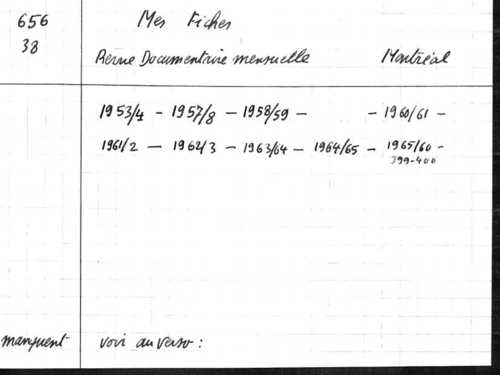 656 Mes Fiches
38
Revue Documentaire mensuelle Montréal
1953/4 - 1957/8 - 1958/59 - - 1960/61 -
1961/2 - 1962/3 - 1963/64 - 1964/65 - 1965/60 -
399-400
manquent voir au verso :